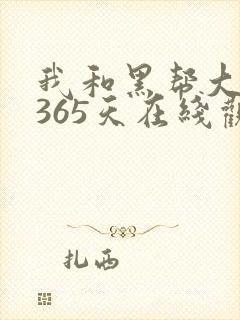 我和黑帮大
365天在线
扎西